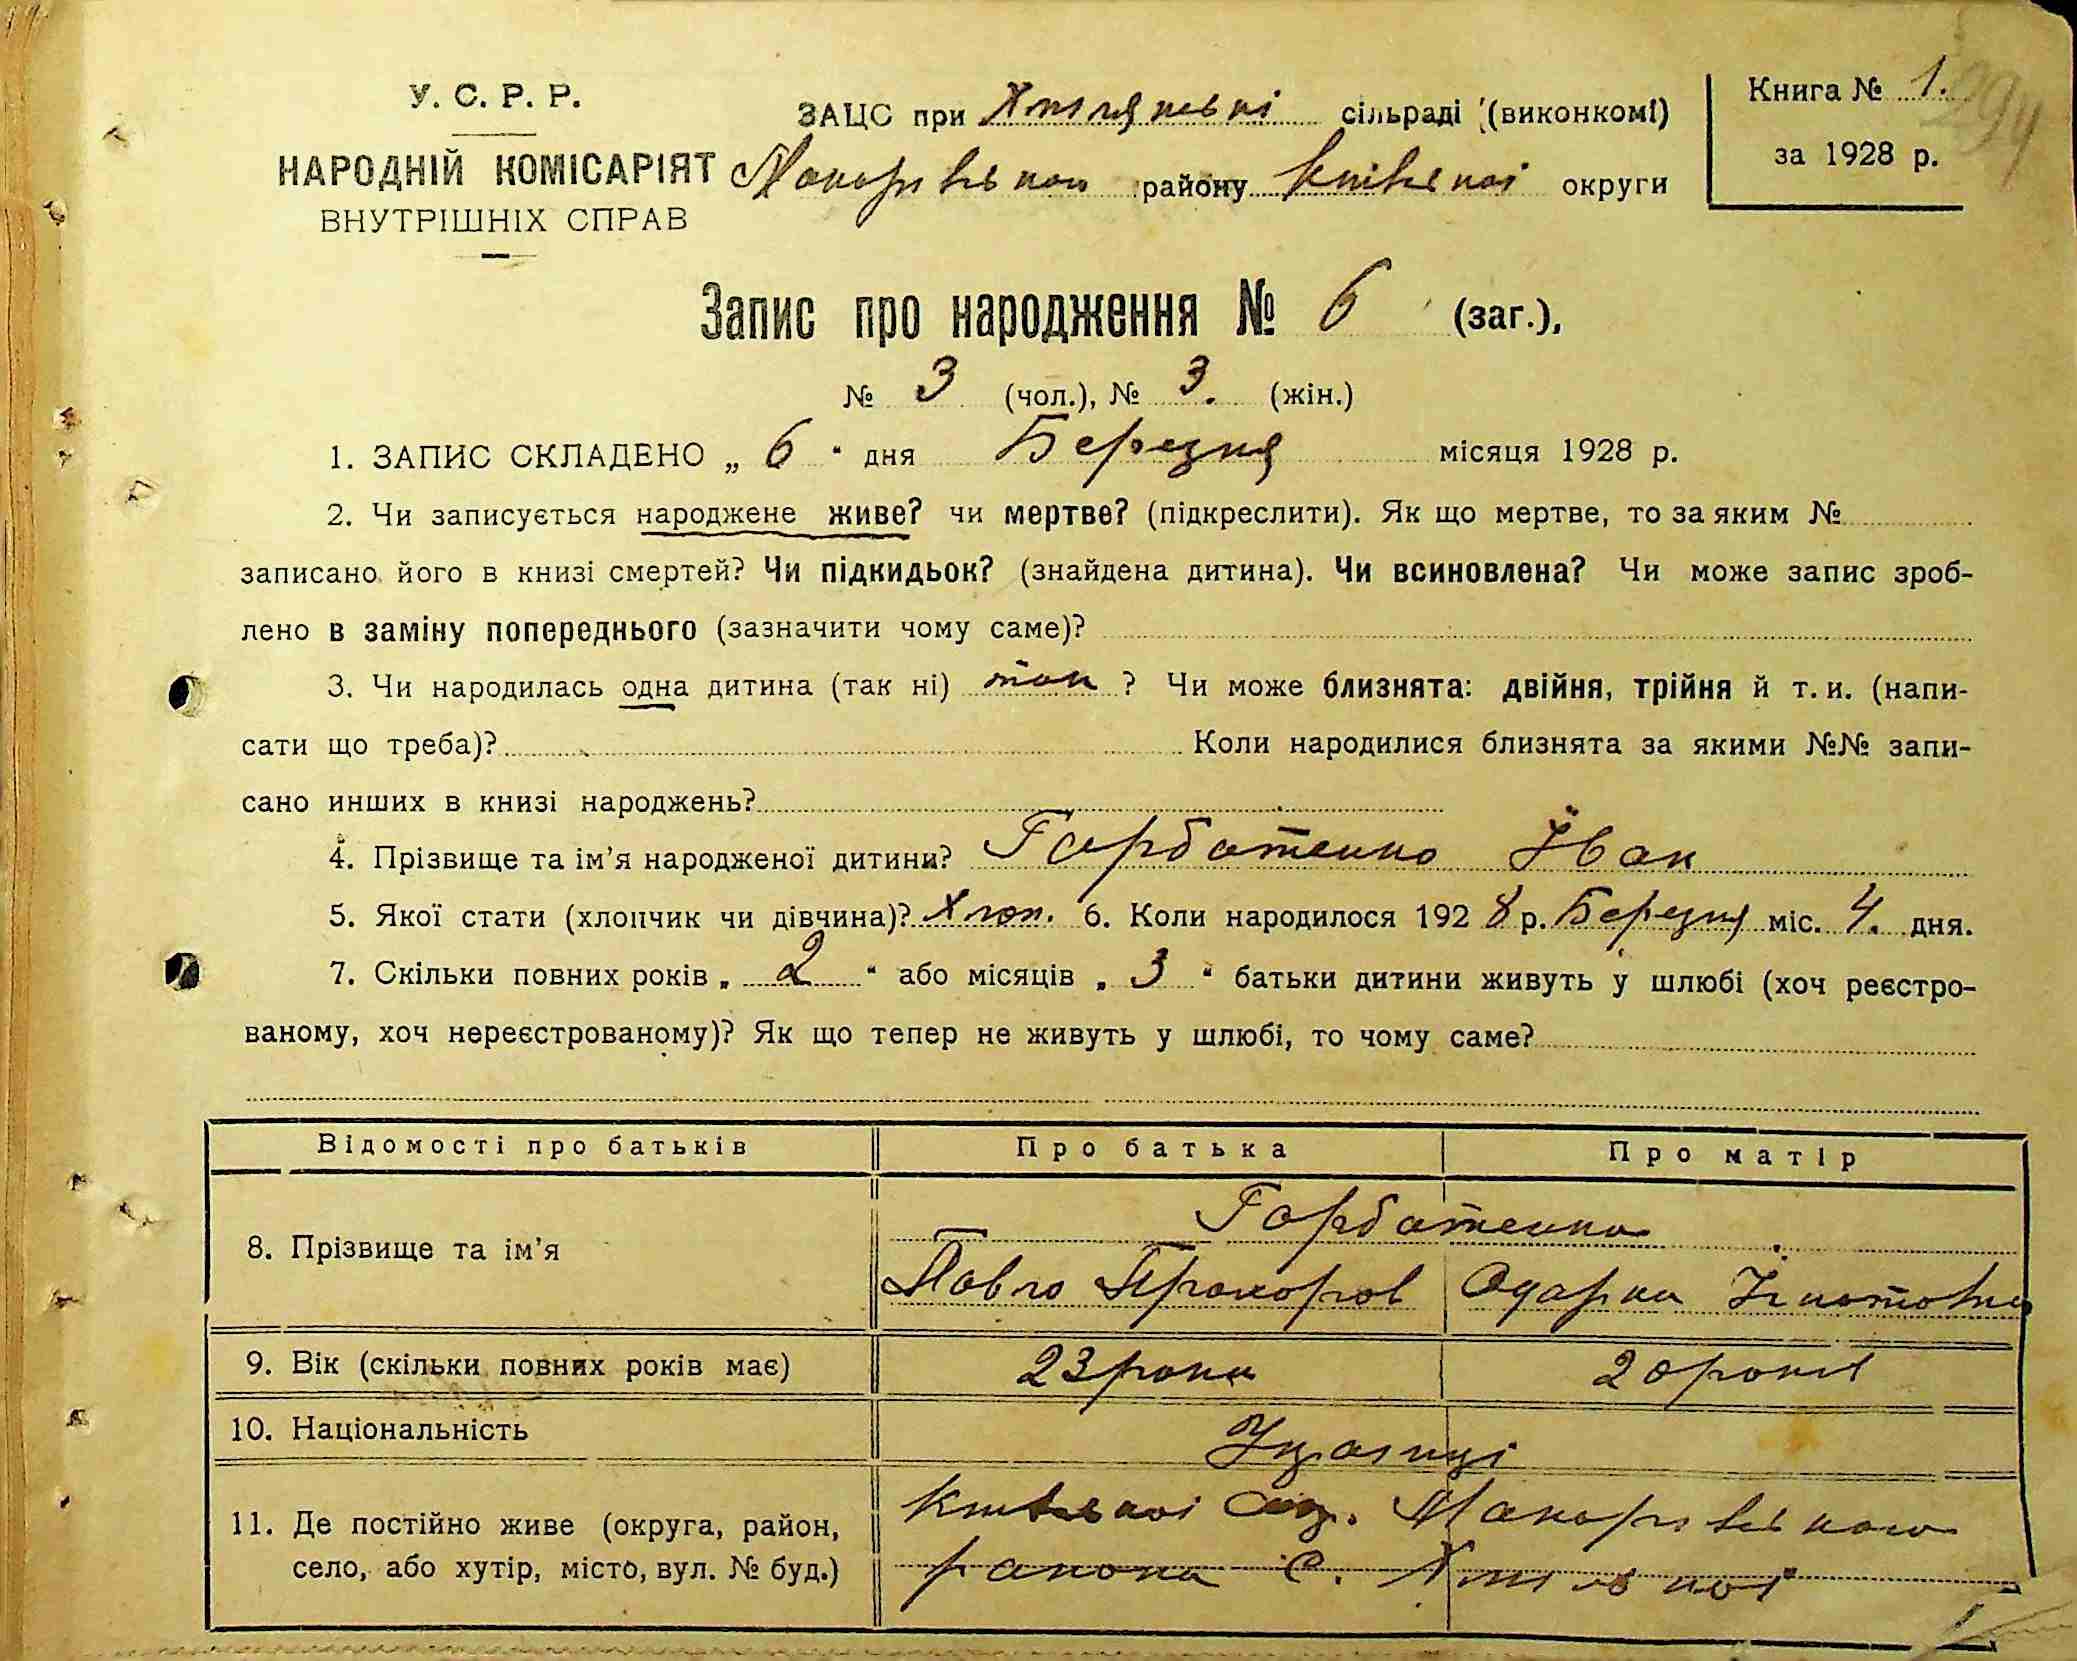 У. С. Р. Р.
НАРОДНІЙ КОМІСАРІЯТ
ВНУТРІШНІХ СПРАВ
ЗАЦС при сільраді (виконкомі)
Макарівськ району Київської округи
Книга № 1.
294
за 1928 р.
Запис про народження № 6 (заг.),
№ 3 (чол.), № 3. (жін.)
1. ЗАПИС СКЛАДЕНО „ 6 “ дня Березня місяця 1928 р.
2. Чи записується народжене живе? чи мертве? (підкреслити). Як що мертве, то за яким №
записано його в книзі смертей? Чи підкидьок? (знайдена дитина). Чи всиновлена? Чи може запис зроб-
лено в заміну попереднього (зазначити чому саме)?
3. Чи народилась одна дитина (так ні) так ? Чи може близнята: двійня, трійня й т. и. (напи-
сати що треба)? Коли народилися близнята за якими №№ запи-
сано инших в книзі народжень?
4. Прізвище та ім’я народженої дитини? Горбатенко Іван
5. Якої стати (хлопчик чи дівчина)? Хлоп. 6. Коли народилося 1928 р. Березня міс. 4. дня.
7. Скільки повних років „ 2 “ або місяців „ 3 “ батьки дитини живуть у шлюбі (хоч реєстро-
ваному, хоч нереєстрованому)? Як що тепер не живуть у шлюбі, то чому саме?
Відомості про батьків Про батька Про матір
8. Прізвище та ім’я Горбатенко
Павло Прохоров Одарка Ігнатовна
9. Вік (скільки повних років має) 23 роки 20 років
10. Національність Українці
11. Де постійно живе (округа, район,
село, або хутір, місто, вул. № буд.)
Київської Окр. Макарівського
району С.